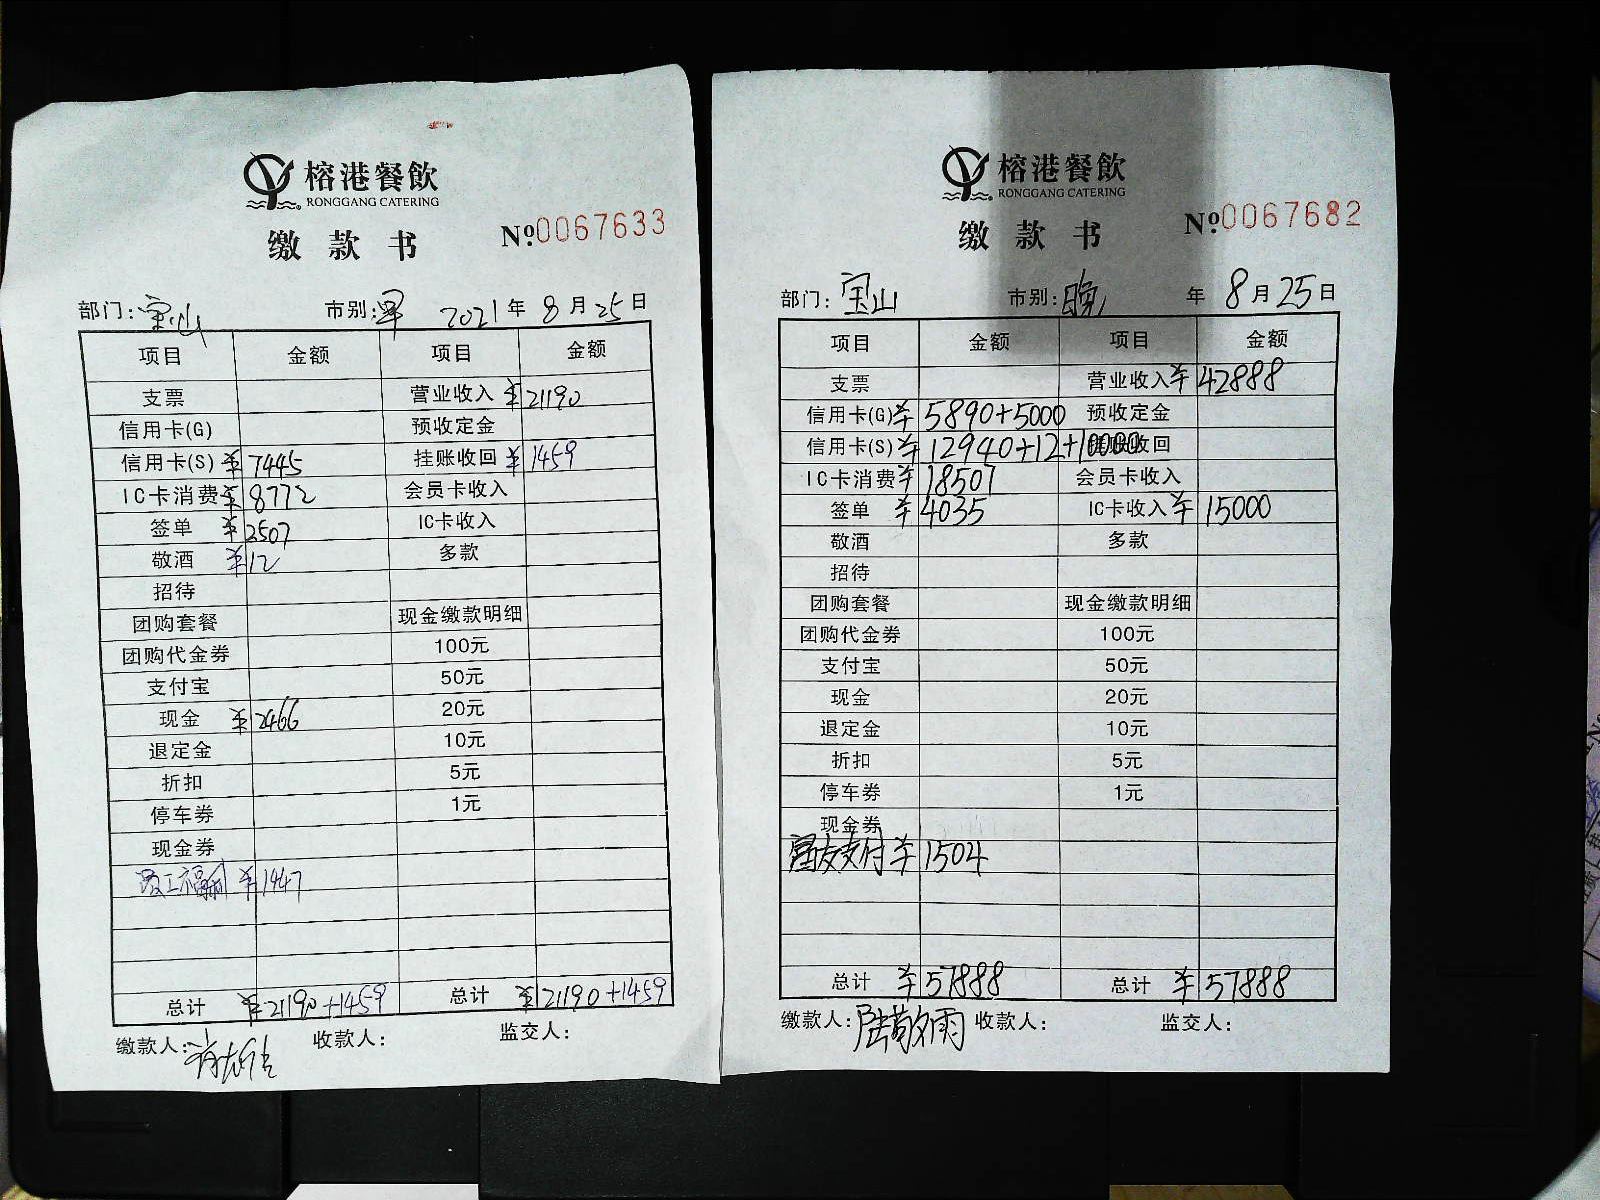 榕港餐飲
RONGGANG CATERING
缴款书 №0067633
部门: 宝山 市别: 早 2021年8月25日
项目 金额 项目 金额
支票 营业收入 ¥21190
信用卡(G) 预收定金
信用卡(S) ¥7445 挂账收回 ¥1459
IC卡消费 ¥8772 会员卡收入
签单 ¥2507 IC卡收入
敬酒 ¥12 多款
招待
团购套餐 现金缴款明细
团购代金券 100元
支付宝 50元
现金 ¥2466 20元
退定金 10元
折扣 5元
停车券 1元
现金券
¥1447
总计 ¥21190+1459 总计 ¥21190+1459
缴款人: 收款人: 监交人:
榕港餐飲
RONGGANG CATERING
缴款书 №0067682
部门: 宝山 市别: 晚 年8月25日
项目 金额 项目 金额
支票 营业收入 ¥42888
信用卡(G) ¥5890+5000 预收定金
信用卡(S) ¥12940+12+10000 挂账收回
IC卡消费 ¥18507 会员卡收入
签单 ¥4035 IC卡收入 ¥15000
敬酒 多款
招待
团购套餐 现金缴款明细
团购代金券 100元
支付宝 50元
现金 20元
退定金 10元
折扣 5元
停车券 1元
现金券
友支付 ¥1504
总计 ¥57888 总计 ¥57888
缴款人: 陆敬雨 收款人: 监交人: